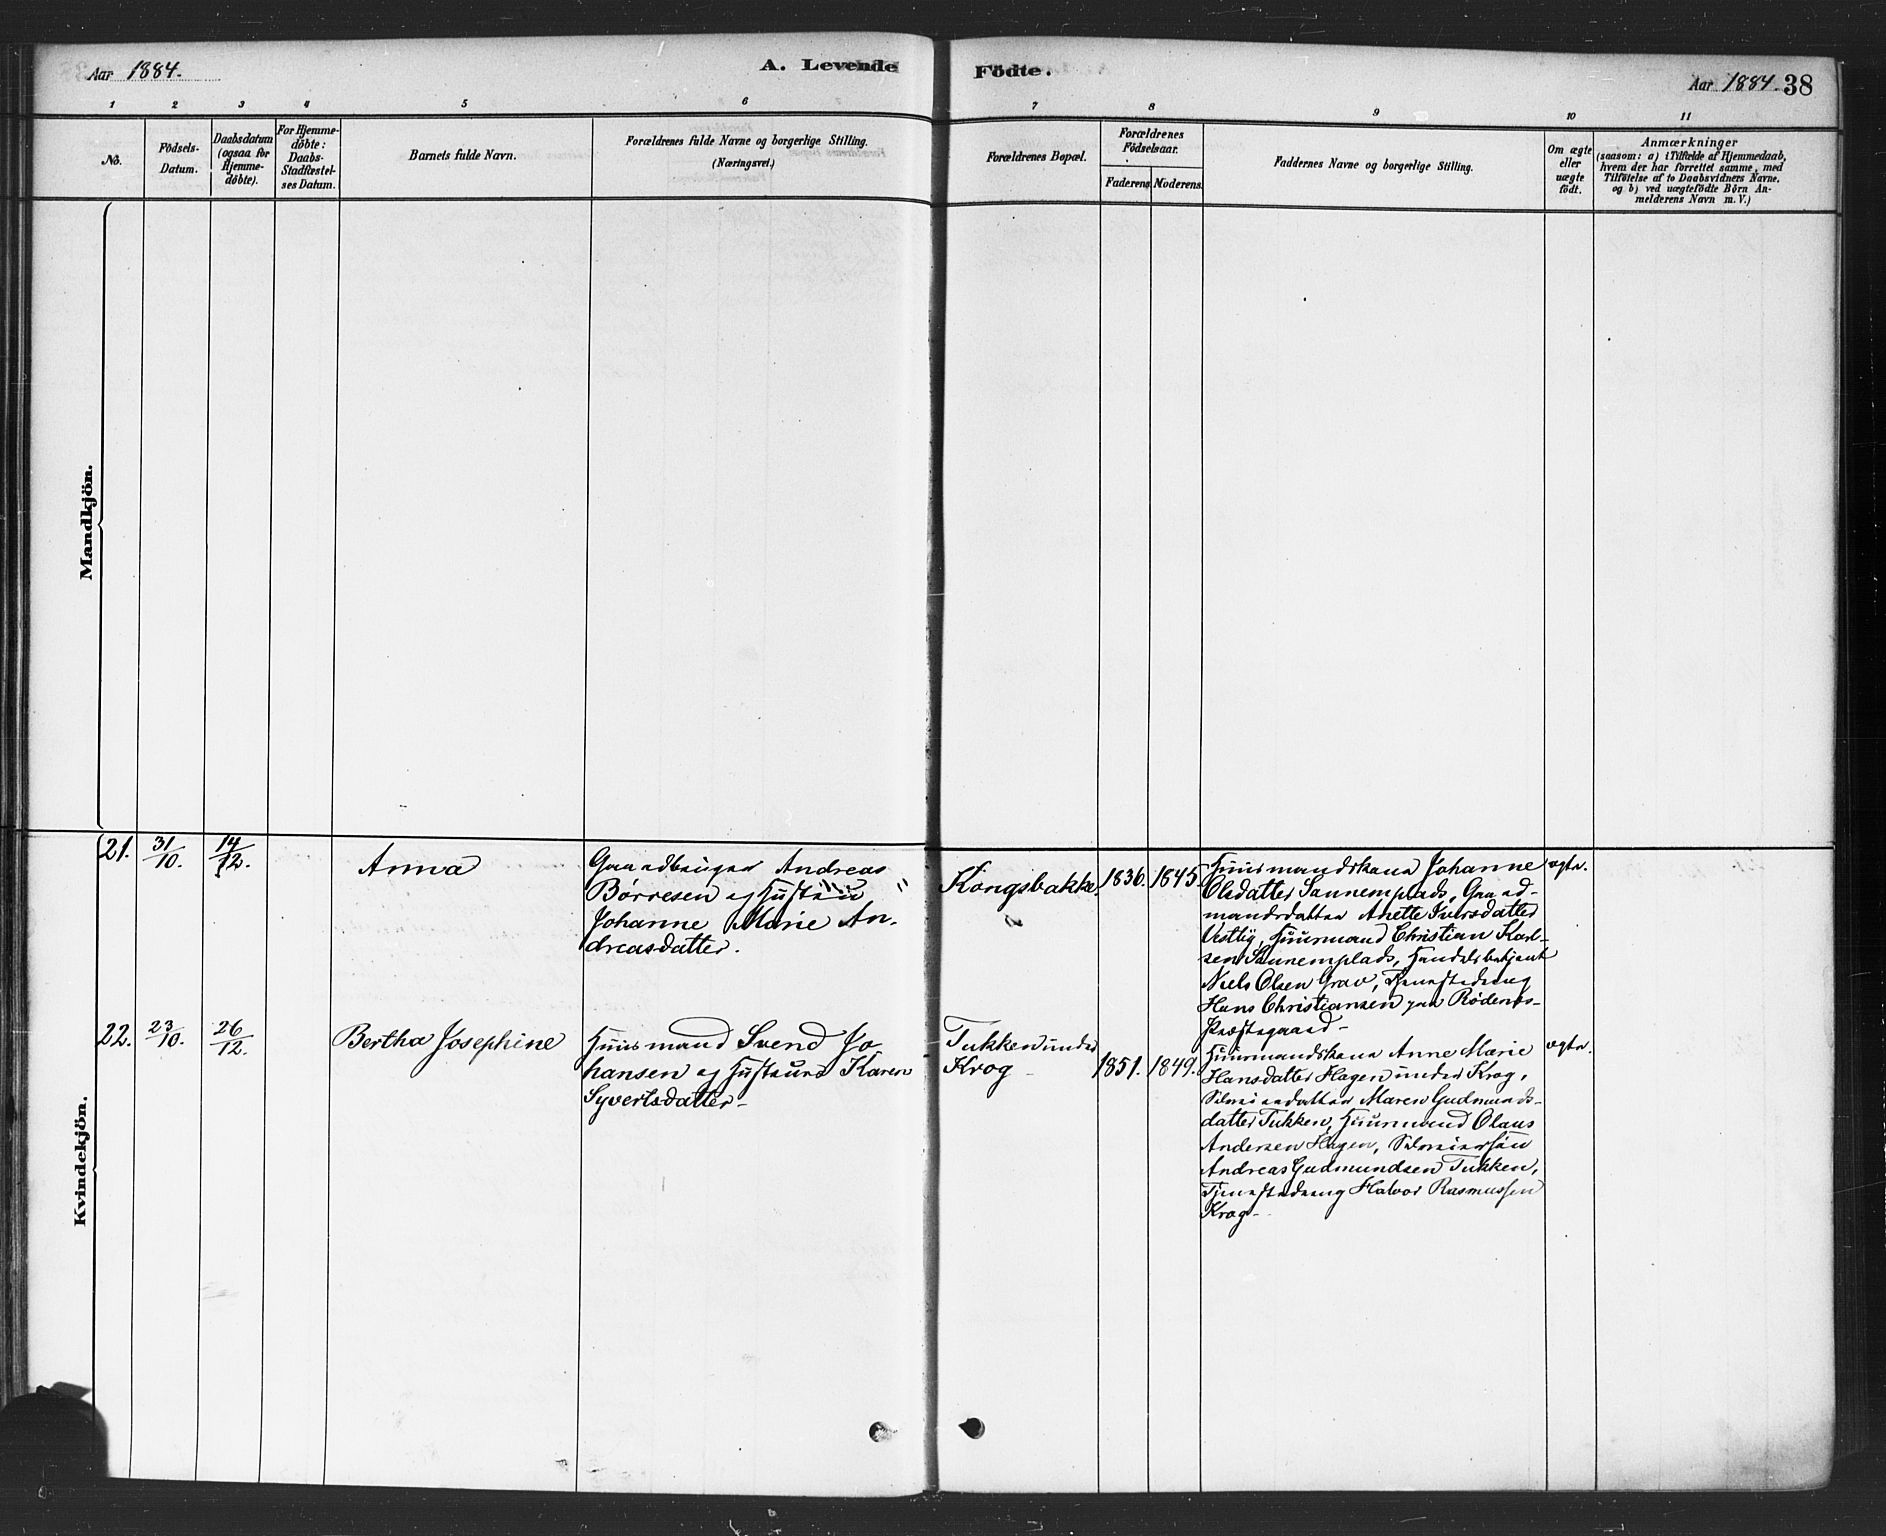 Aar 1884.
A. Levende Födte.
Aar 1884. 38
1 2 3 4 5 6 7 8 9 10 11
No.
Födsels-
Datum.
Daabsdatum
(ogsaa for
Hjemme-
døbte).
For Hjemme-
døbte:
Daabs-
Stadfæstel-
ses Datum.
Barnets fulde Navn.
Forældrenes fulde Navne og borgerlige Stilling.
(Næringsvei.)
Forældrenes Bopæl.
Forældrenes
Födselsaar.
Faderens.
Moderens.
Faddernes Navne og borgerlige Stilling.
Om ægte
eller
uægte
födt.
Anmærkninger
(saasom: a) i Tilfælde af Hjemmedaab,
hvem der har forrettet samme, med
Tilföielse af to Daabsvidners Navne,
og b) ved uægtefödte Börn An-
melderens Navn m. V.)
Mandkjön.
Kvindekjön.
21.
31/10.
14/12.
Anna
Gaardbruger Andreas
Børresen og Hustru
Johanne Marie An-
dreasdatter.
Kongsbakke.
1836.
1845
Huusmandskone Johanne
Olsdatter Sannemplads, Gaard-
mandsdatter Anette Iversdatter
Vestby, Huusmand Christian Karl-
sen Sannemplads, Handelsbetjent
Niels Olsen Grav, Tjenestedreng
Hans Christiansen paa Rødenes-
Præstegaard-
ægte.
22.
23/10.
26/12.
Bertha Josephine
Huusmand Svend Jo
hansen og Hustru Karen
Syvertsdatter-
Tukken under
Krog
1851.
1849.
Huusmandskone Anne Marie
Hansdatter Hagen under Krog,
Maren Gudmunds-
datter Tukken, Huusmand Olaus
Andersen Hagen,
Andreas Gudmundsen Tukken,
Tjenestedreng Halvor Rasmussen
Krog-
ægte.